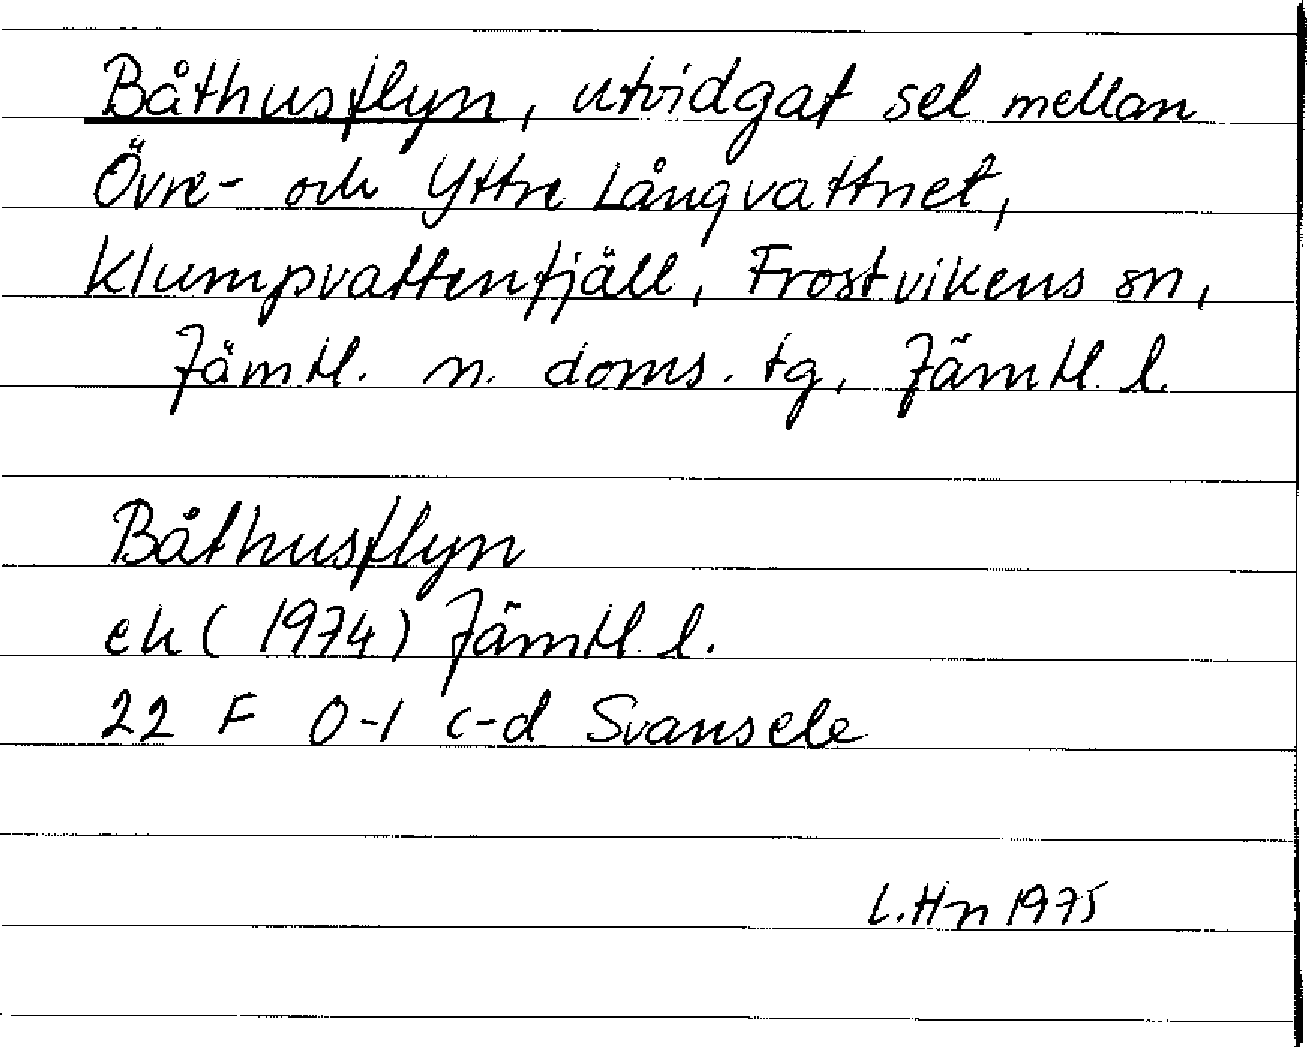 Båthusflyn, utvidgat sel mellan
Övre- och Yttre Långvattnet,
Klumpvattenfjäll, Frostvikens sn,
Jämtl. n. doms. tg, Jämtl. l.
Båthusflyn
ek (1974) Jämtl. l.
22 F 0-1 c-d Svansele
L. Hn 1975